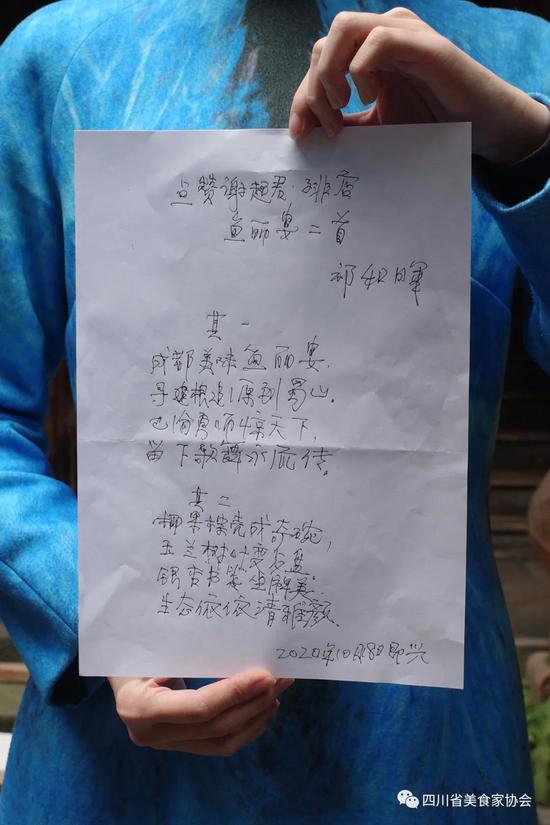 点赞谢君·
鱼丽宴二首
祁和晖
其一
成都美味鱼丽宴,
寻根追源到蜀山.
巴渝勇师惊天下,
留下歌舞永流传。
其二
椰果棕壳成奇碗,
玉兰树叶变盘
银杏书签美.
生态依依清雅颜.
2020年10月8日即兴
四川省美食家协会